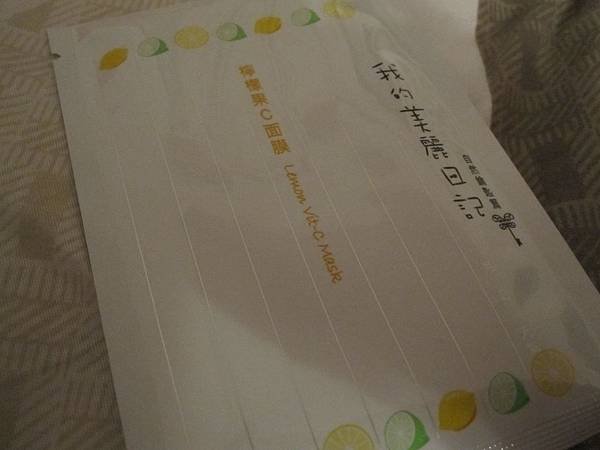 我的美麗日記
自然鑰系列
檸檬果C面膜 Lemon Vit-C Mask